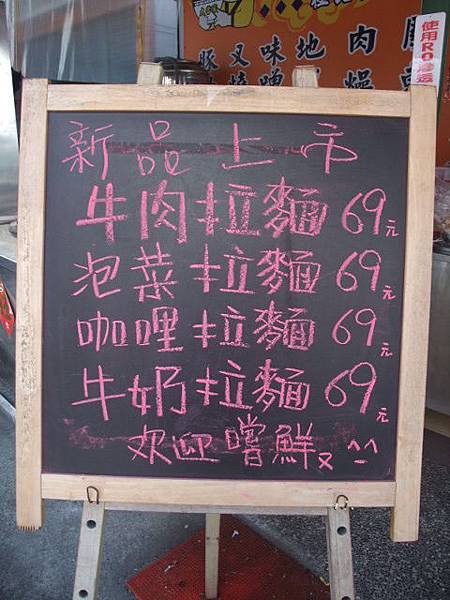 豚叉味地肉
燒噌 燥
使用RO滲透
新品上市
牛肉拉麵 69元
泡菜拉麵 69元
咖哩拉麵 69元
牛奶拉麵 69元
欢迎嚐鮮又 ^_^